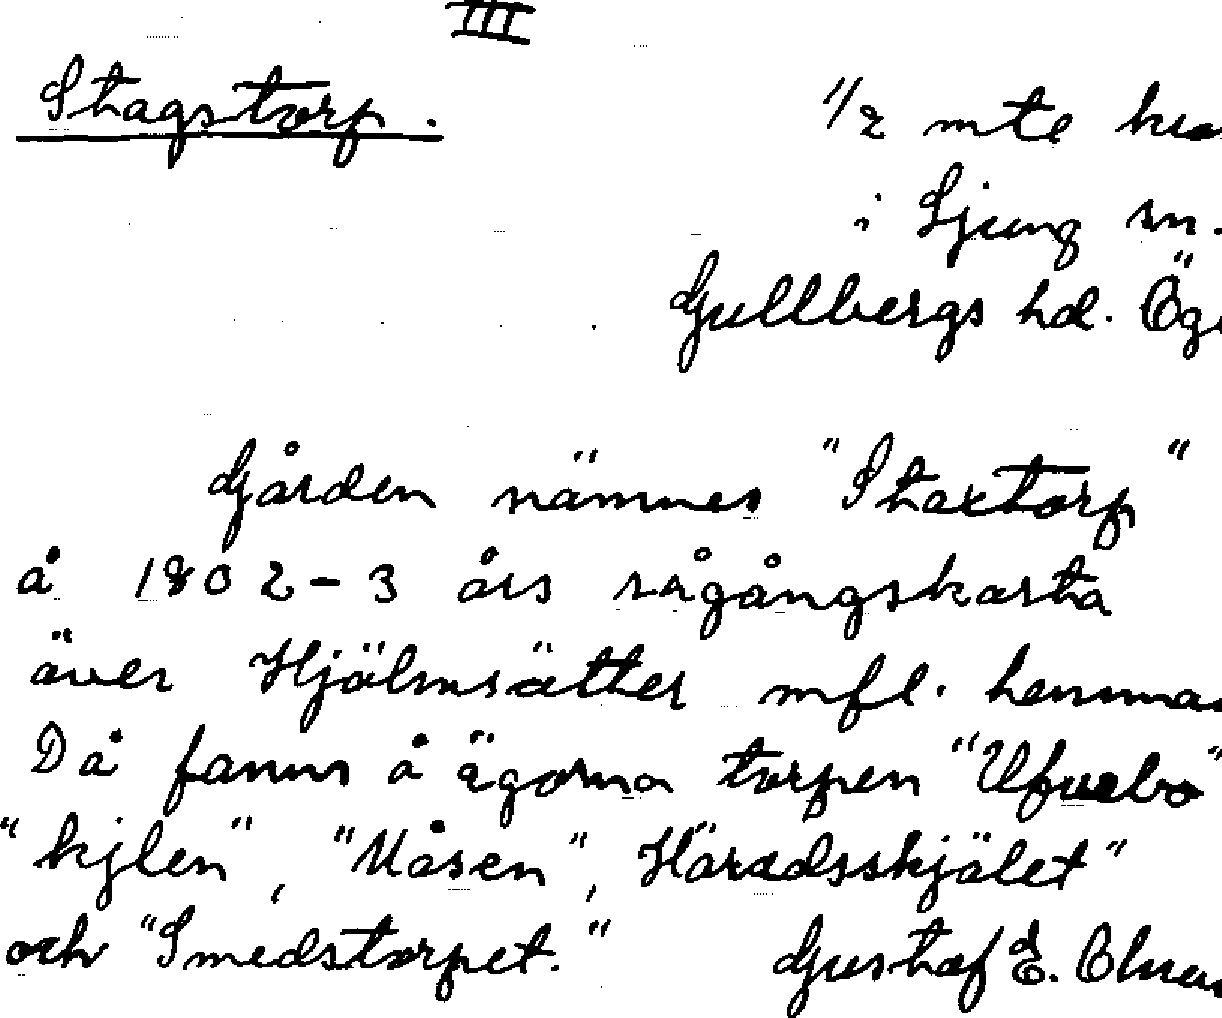 III
Stagstorp.
1/2 mtl
i Ljung sn.
Gullbergs hd. Ög
Gården nämnes "Staxtorp"
å 1802-3 års rågångskarta
över Hjälmsätter mfl. hemma
Då fanns å ägorna torpen "Ufvebo"
"kjlen", "Måsen", Häradsskjälet"
och "Smedstorpet." Gustaf E.